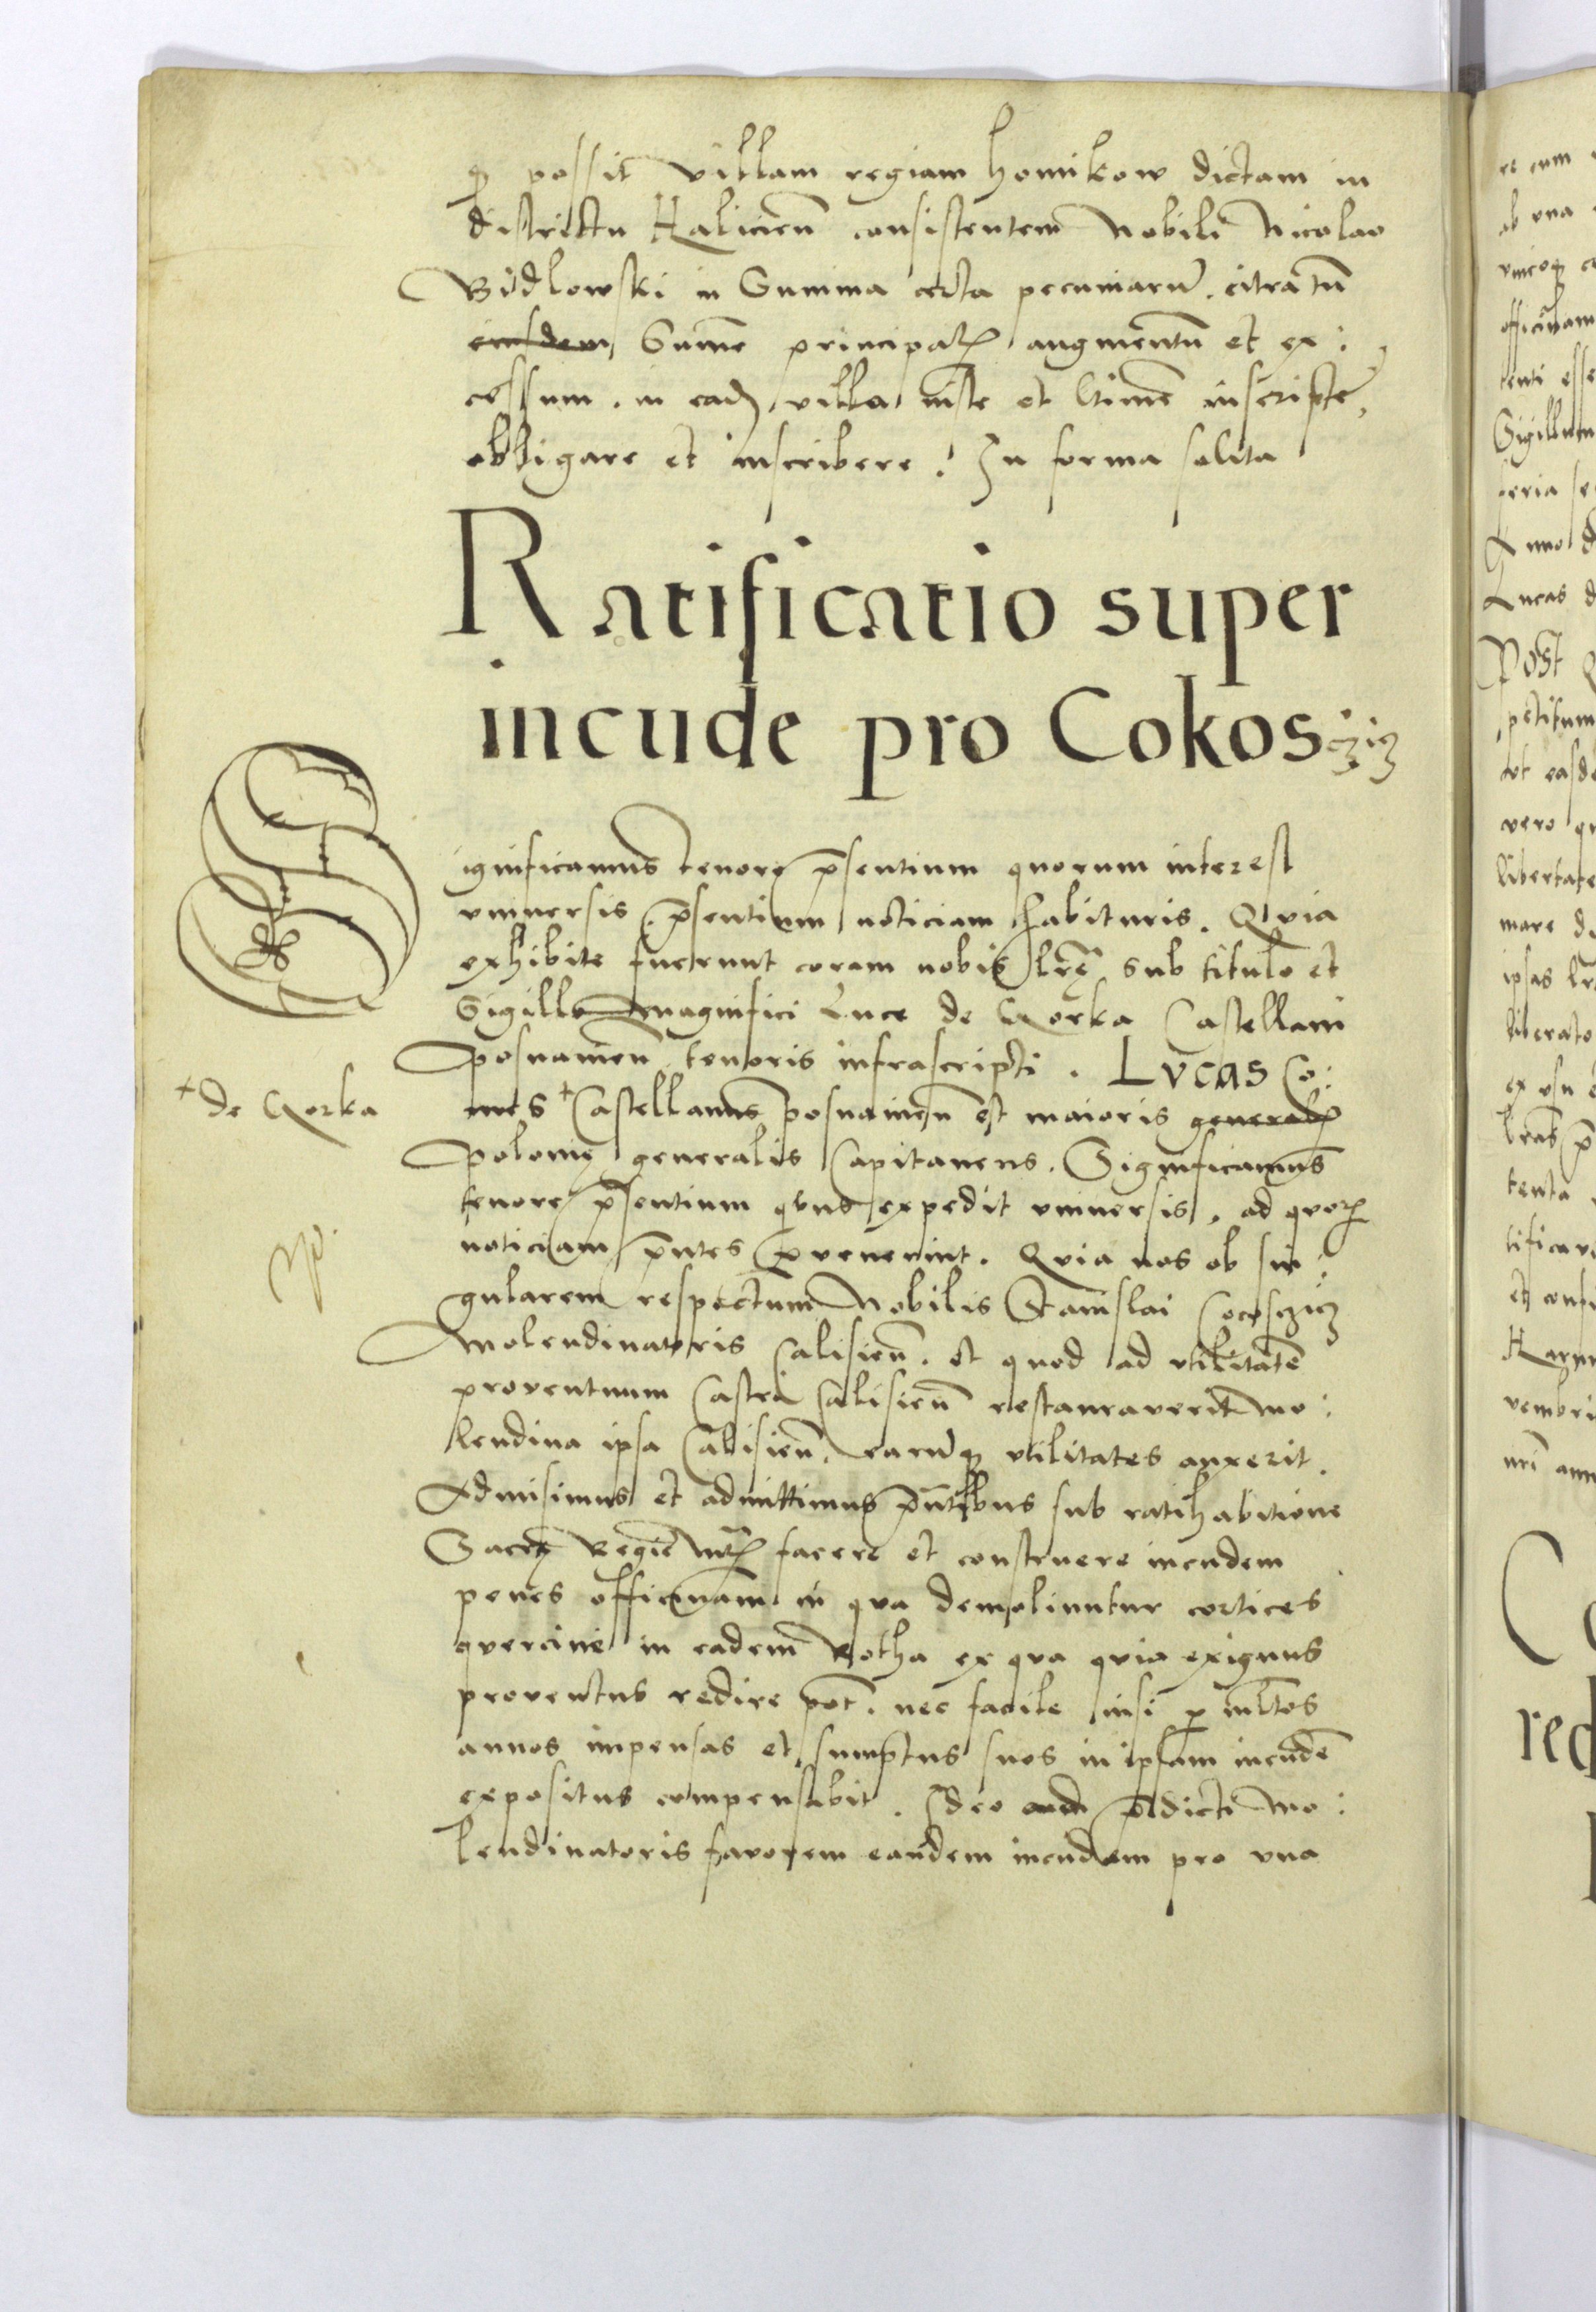 ꝙ possit villam regiam homikow dictam in
districtu Halicien̄ consistentem Nobili Nicolao
Bidlowski in Summa certa pecuniarū, citra tn̄
eiusdem Summe principał augmentū et ex:
cessum, in eadē villa iuste et ltime inscripte,
obligare et inscribere. In forma solita
Ratificatio super
incude pro Cokosczicz
Significamus tenore p̄sentium quorum interest
vniuersis p̄sentium noticiam habituris. Quia
exhibite fuerunt coram nobis lrę sub titulo et
Sigillo magnifici Luce de Gorka Castellani
posnanien̄ tenoris infrascripti. Lvcas Co:
mes + Castellanus posnanien̄ et maioris general
polonię generalis Capitaneus. Significamus
+ de Gorka
tenore p̄sentium quns expedit vniuersis, ad quoꝝ
noticiam p̄ntes ꝑvenerint. Quia nos ob sin:
gularem respectum Nobilis Stanislai Cocosczicz
Molendinatoris Calisien̄. et quod ad vtilitatē
proventuum Castri Calisien̄ restauraverit mo:
lendina ipsa Calisien̄, earūqꝫ vtilitates auxerit.
Admisimus et admittimus p̄ntibus sub ratihabitione
Sacrę Regię Mtꝭ facere et construere incudem
penes officinam in qua demoliuntur cortices
quercine in eadem Rotha ex qua quia exiguus
proventus redire pōt, nec facile nisi ꝑ mltos
annos impensas et sumptus suos in ipsam incudē
expositus compensabit. Ideo p̄dicti mo:
lendinatoris favorem eandem incudem pro vna